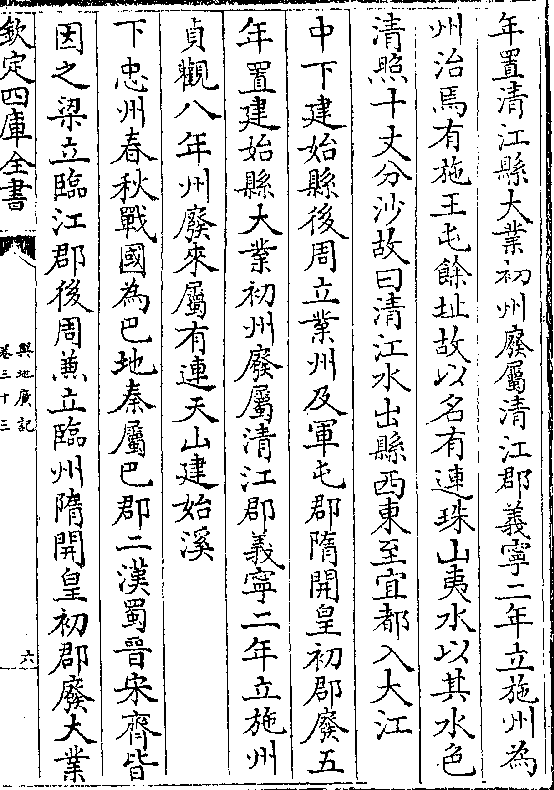 年置清江縣大業初州廢屬清江郡義寧二年立施州為
州治焉有施王屯餘址故以名有連珠山夷水以其水色
清照十丈分沙故曰清江水出縣西東至宜都入大江
中下建始縣後周立業州及軍屯郡隋開皇初郡廢五
年置建始縣大業初州廢屬清江郡義寧二年立施州
貞觀八年州廢來屬有連天山建始溪
下忠州春秋戰國為巴地秦屬巴郡二漢蜀晉宋齊皆
因之梁立臨江郡後周兼立臨州隋開皇初郡廢大業
欽定四庫全書
輿地廣記
卷三十三
六